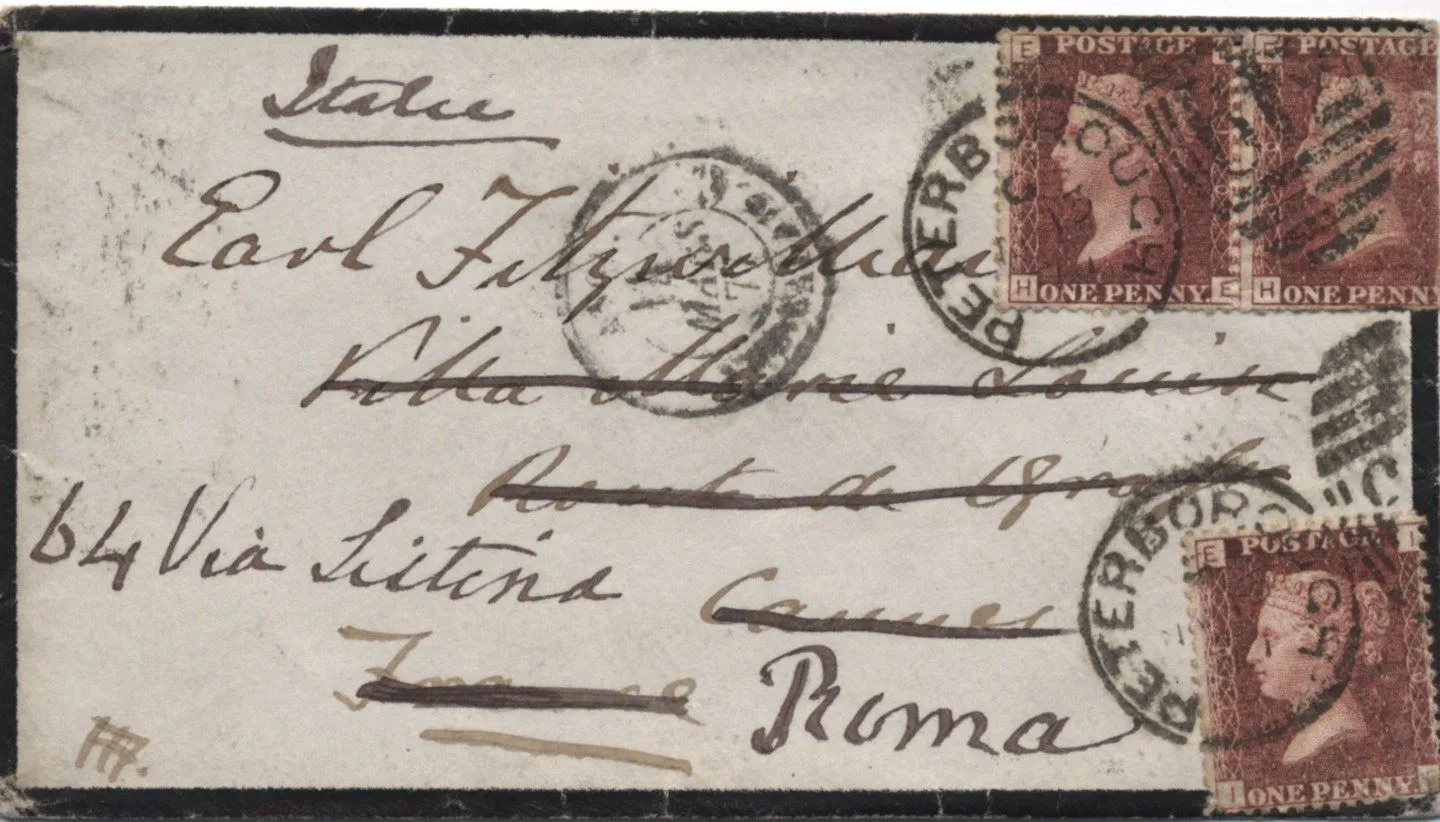 Italie
Earl Fitzwilliam
Villa Marie Louise
Route de
64 Via Sistina
Cannes
France
Roma
PETERBOROUGH
PETERBOROUGH
MARS
E POSTAGE
H ONE PENNY. E
POSTAGE
H ONE PENNY
E POSTAGE I
I ONE PENNY.